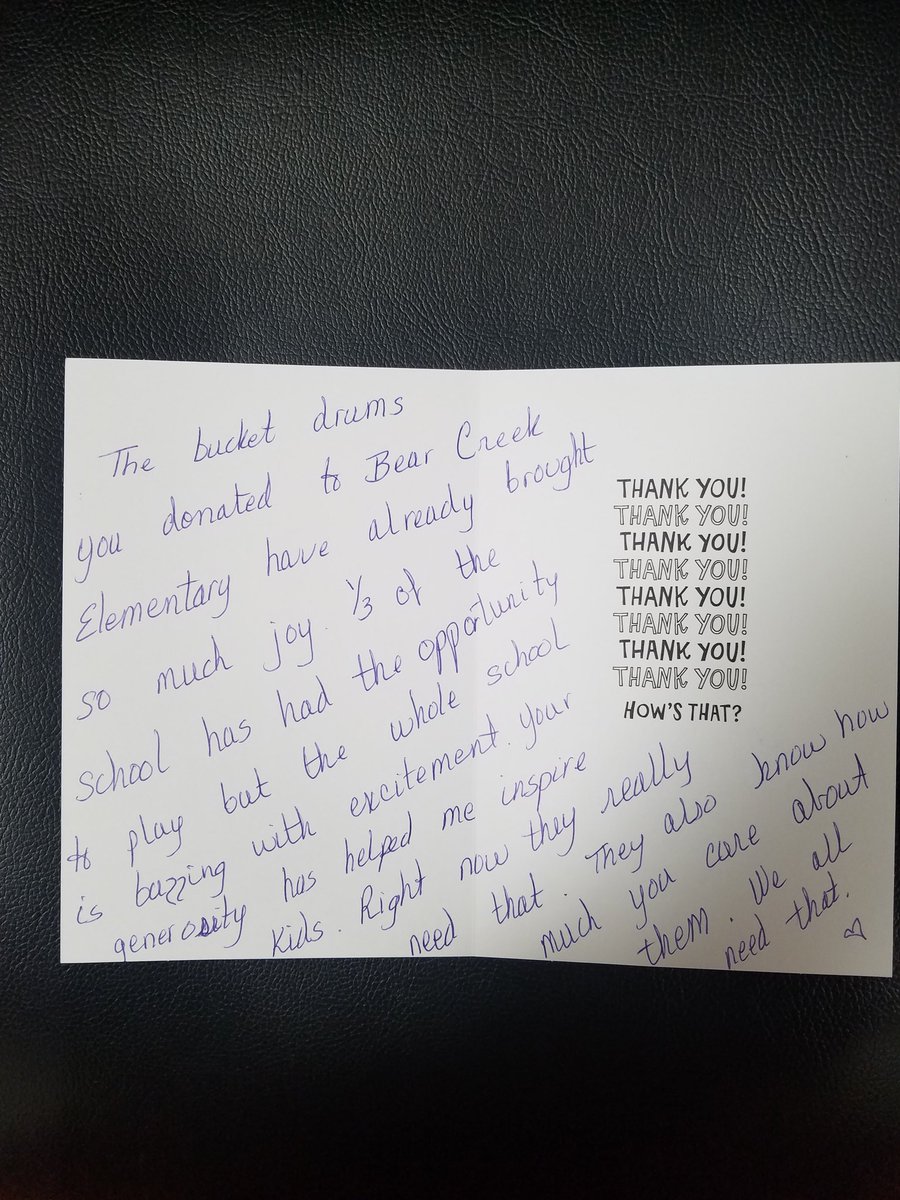 The bucket drums
you donated to Bear Creek
Elementary have already brought
so much joy. 1/3 of the
school has had the opportunity
to play but the whole school
is buzzing with excitement. your
generosity has helped me inspire
kids. Right now they really
need that. They also know how
much you care about
them. We all
need that.
THANK YOU!
THANK YOU!
THANK YOU!
THANK YOU!
THANK YOU!
THANK YOU!
THANK YOU!
THANK YOU!
HOW'S THAT?